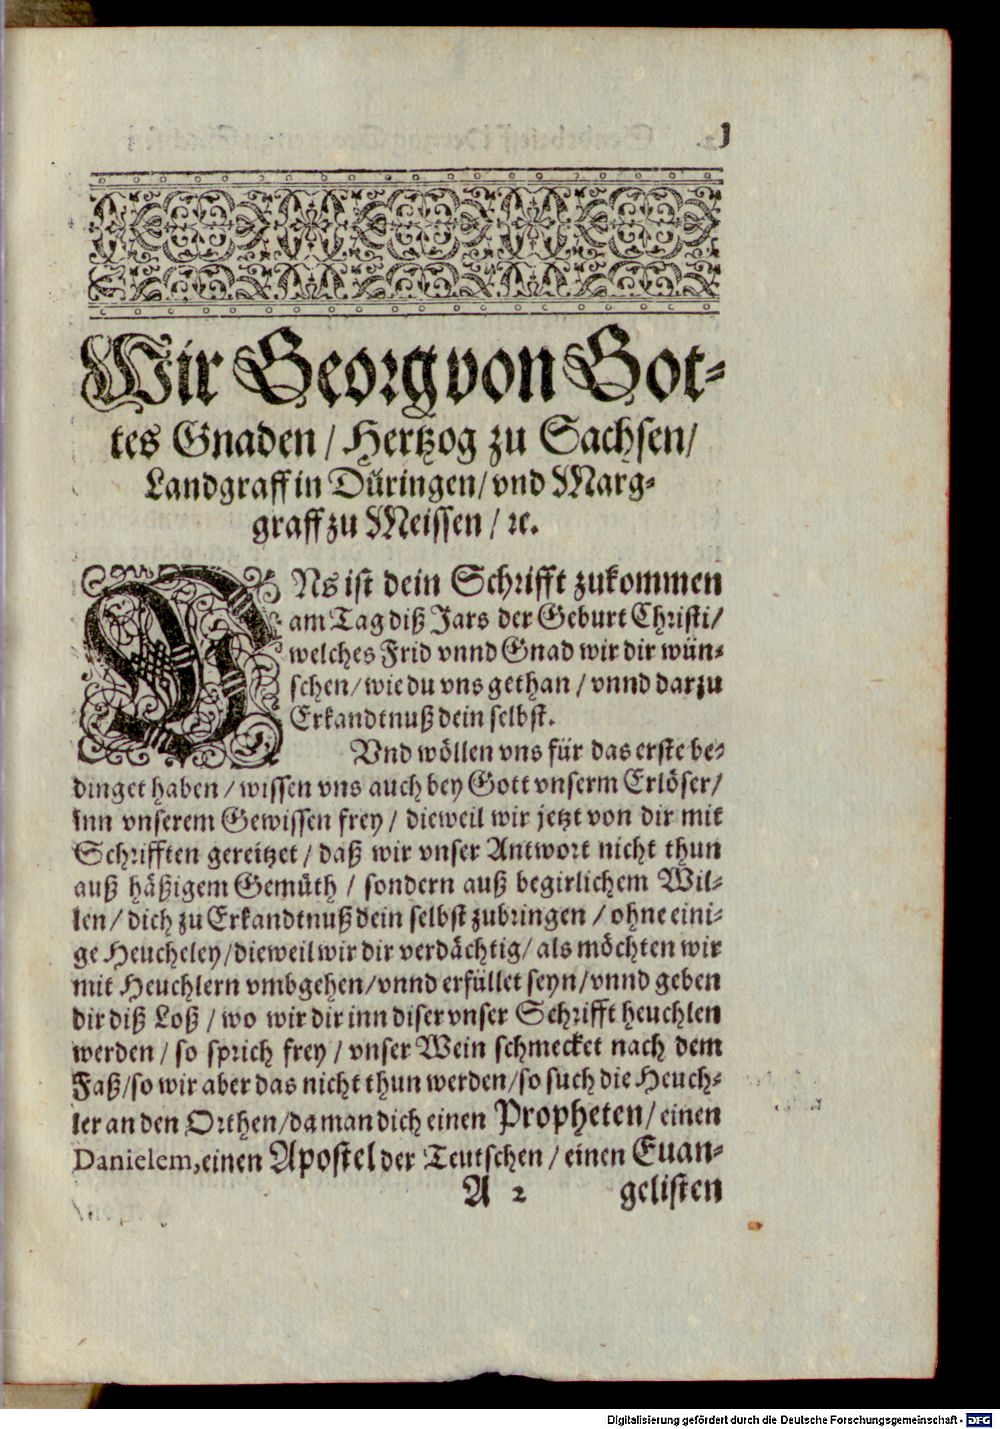 1
Wir Georg von Got-
tes Gnaden / Hertzog zu Sachsen /
Landgraff in Düringen / vnd Marg-
graff zu Meissen / ꝛc.
VNs ist dein Schrifft zukommen
am Tag diß Jars der Geburt Christi /
welches Frid vnnd Gnad wir dir wün-
schen / wie du vns gethan / vnnd darzu
Erkandtnuß dein selbst.
Vnd wöllen vns für das erste be-
dinget haben / wissen vns auch bey Gott vnserm Erlöser /
inn vnserem Gewissen frey / dieweil wir jetzt von dir mit
Schrifften gereitzet / daß wir vnser Antwort nicht thun
auß häßigem Gemüth / sondern auß begirlichem Wil-
len / dich zu Erkandtnuß dein selbst zubringen / ohne eini-
ge Heucheley / dieweil wir dir verdächtig / als möchten wir
mit Heuchlern vmbgehen / vnnd erfüllet seyn / vnnd geben
dir diß Loß / wo wir dir inn diser vnser Schrifft heuchlen
werden / so sprich frey / vnser Wein schmecket nach dem
Faß / so wir aber das nicht thun werden / so such die Heuch-
ler an den Orthen / da man dich einen Propheten / einen
Danielem, einen Apostel der Teutschen / einen Euan-
A 2 gelisten
Digitalisierung gefördert durch die Deutsche Forschungsgemeinschaft - DFG